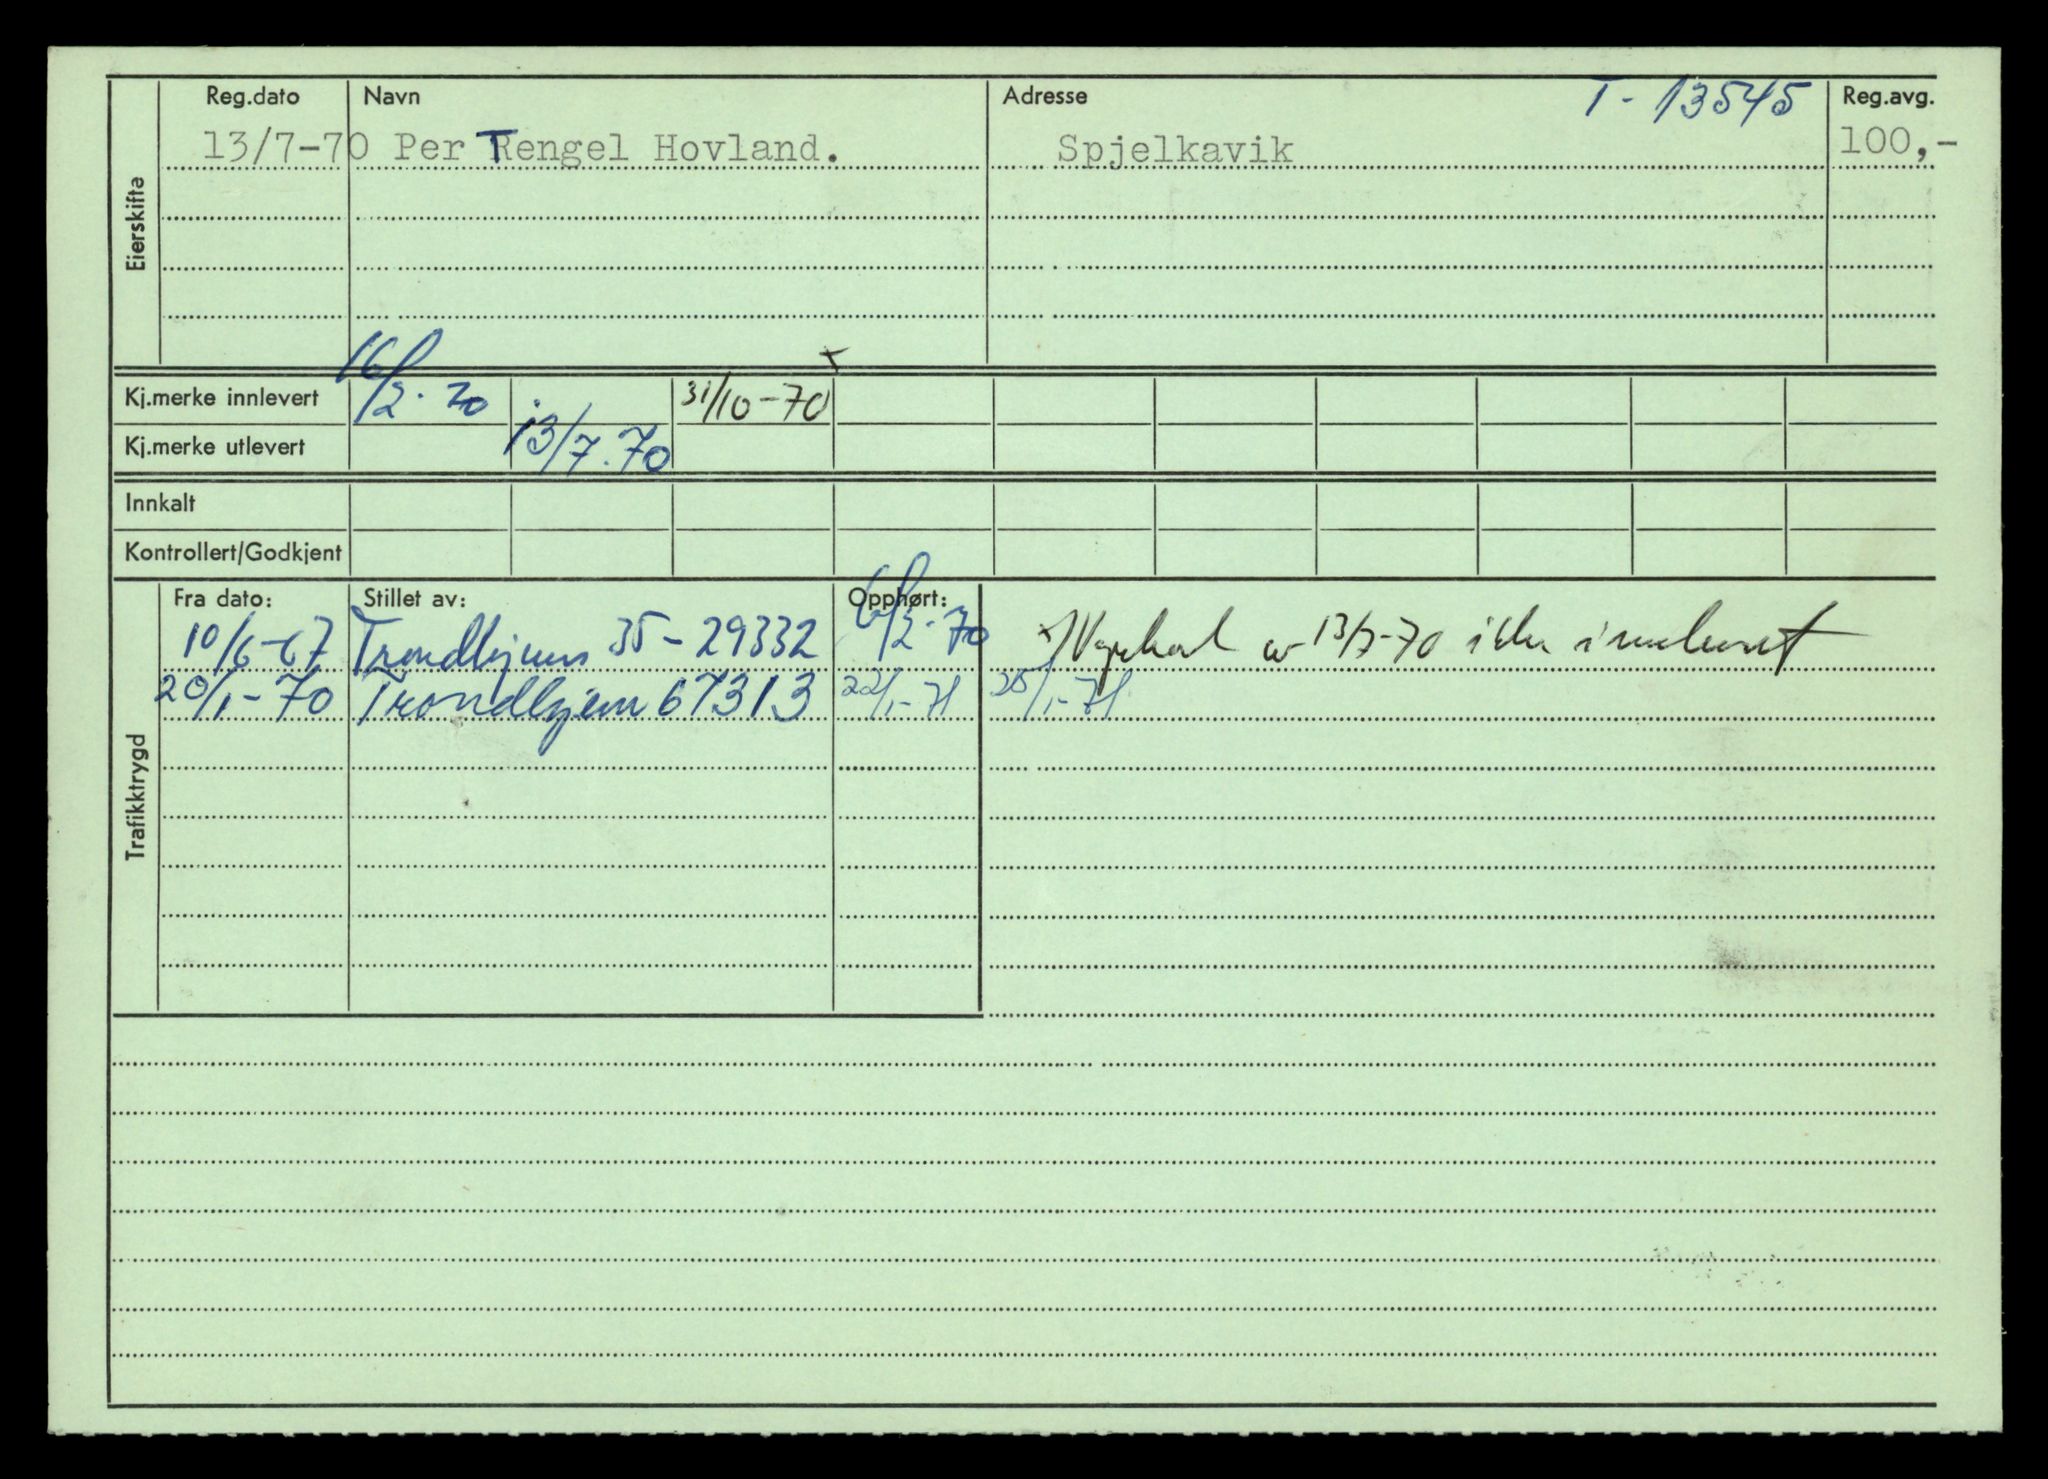 Reg.dato Navn Adresse T-13545 Reg.avg.
13/7-70 Per TRengel Hovland. Spjelkavik 100,-
Eierskifte
Kj.merke innlevert 16/2-70 31/10-70 x
Kj.merke utlevert 13/7.70
Innkalt
Kontrollert/Godkjent
Trafikktrygd
Fra dato: Stillet av: Opphørt:
10/6-67 Trondhjems 35-29332 6/2-70 x) Vognkort av 13/7-70 ikke innlevert
20/1-70 Trondhjem 67313 22/1-71 25/1-71